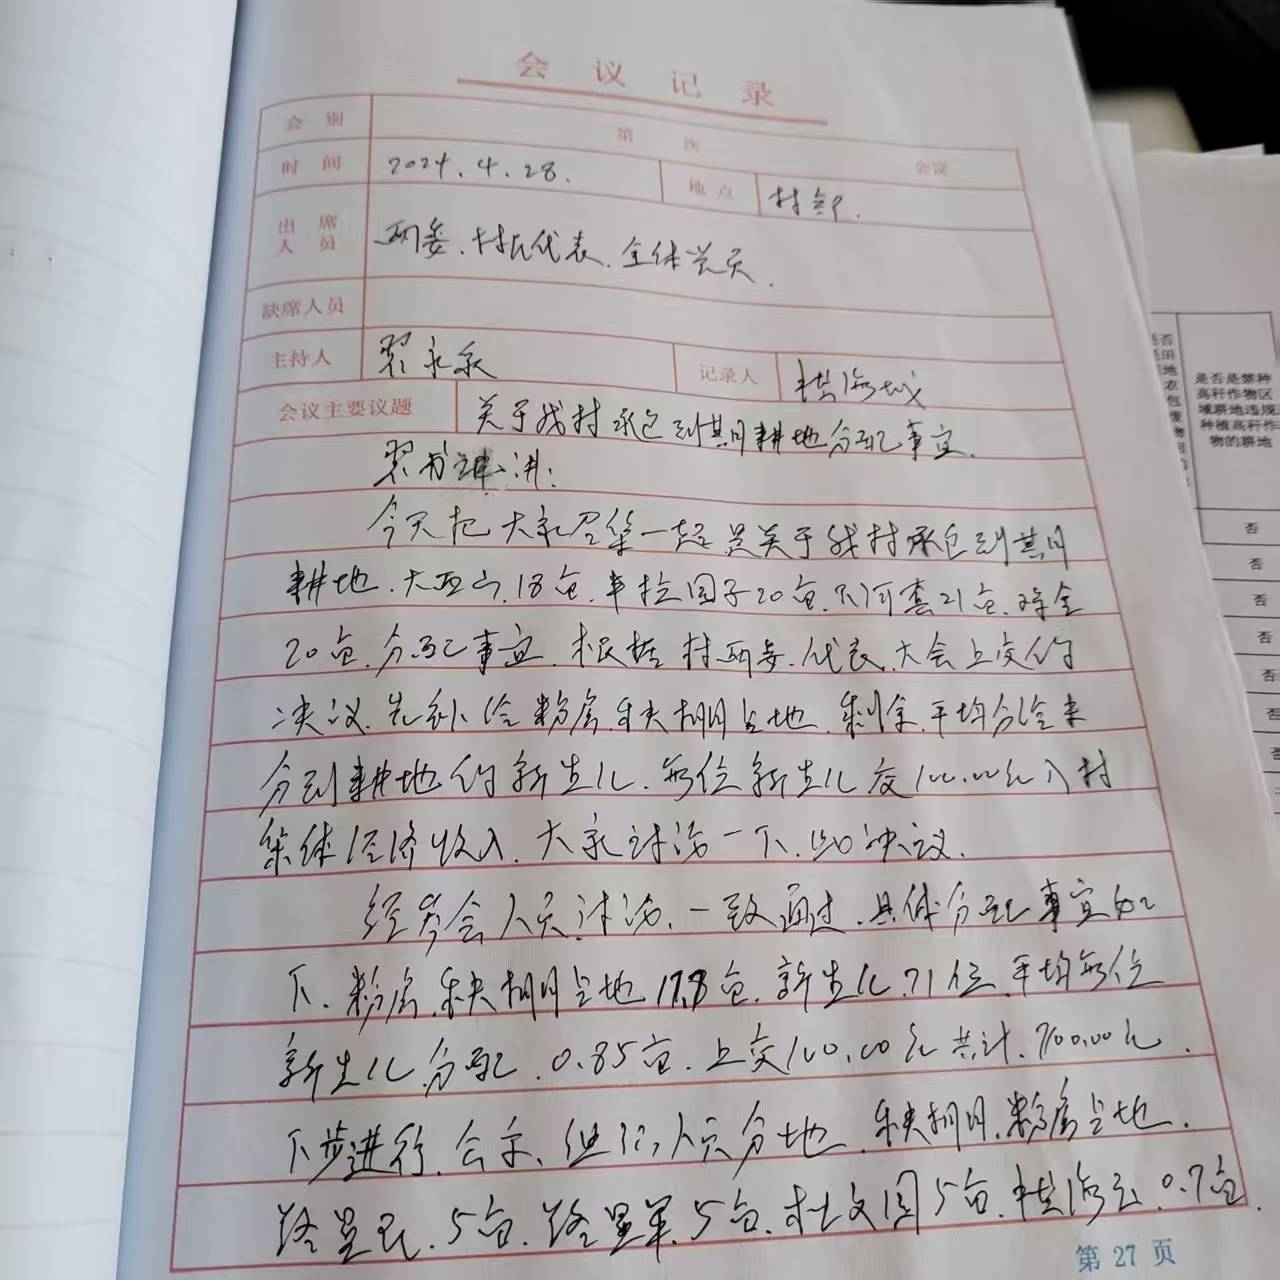 会 议 记 录
会 别 第 次 会议
时 间 2024.4.28. 地 点 村部.
出 席 人 员 两委、村民代表、全体党员.
缺席人员
主持人 永 记录人 海
会议主要议题 关于我村承包到期耕地分配事宜.
书记讲:
今天把大家召集一起是关于我村承包到期
耕地、大西山18亩、车拉园子20亩、下河套21亩、
20亩、分配事宜、根据村两委、代表大会上交的
决议、先补给粉房、秧棚占地、剩余平均分给未
分到耕地的新生儿、每位新生儿交100.00元入村
集体经济收入、大家讨论一下、决议.
经参会人员讨论、一致通过、具体分配事宜如
下、粉房、秧棚占地17.8亩、新生儿71位、平均每位
新生儿分配0.85亩、上交100.00元共计7100.00元.
下步进行公示、组织人员分地、秧棚、粉房占地.
5亩、5亩、杜文园5亩、海 0.7亩.
第 27 页
是否是禁种
高秆作物区
域耕地违规
种植高秆作
物的耕地
否
否
否
否
否
否
否